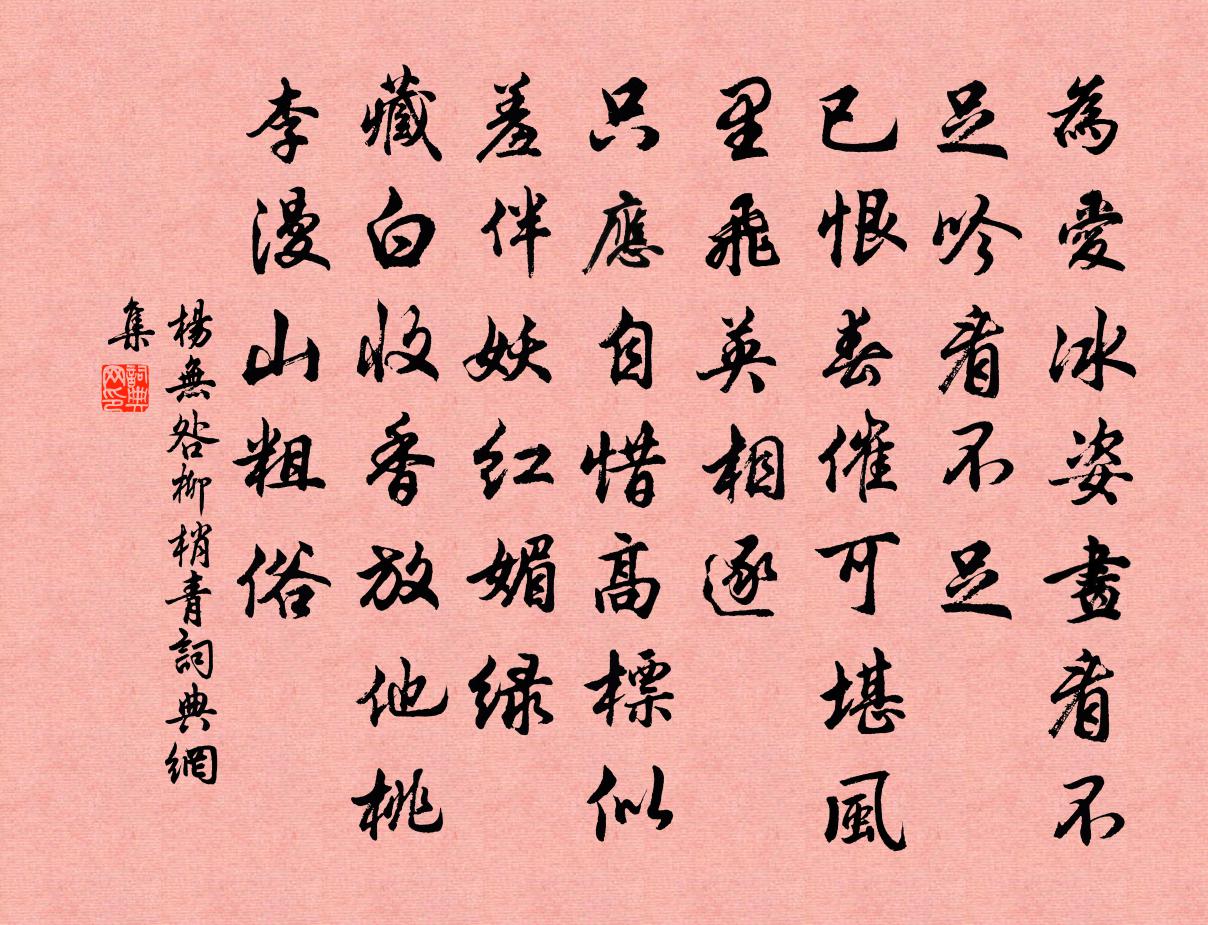 為愛冰姿畫看不
足吟看不足
已恨春催可堪風
里飛英相逐
只應自惜高標似
羞伴妖紅媚绿
藏白收香放他桃
李漫山粗俗
楊無咎柳梢青詞典網
集
詞典
网印